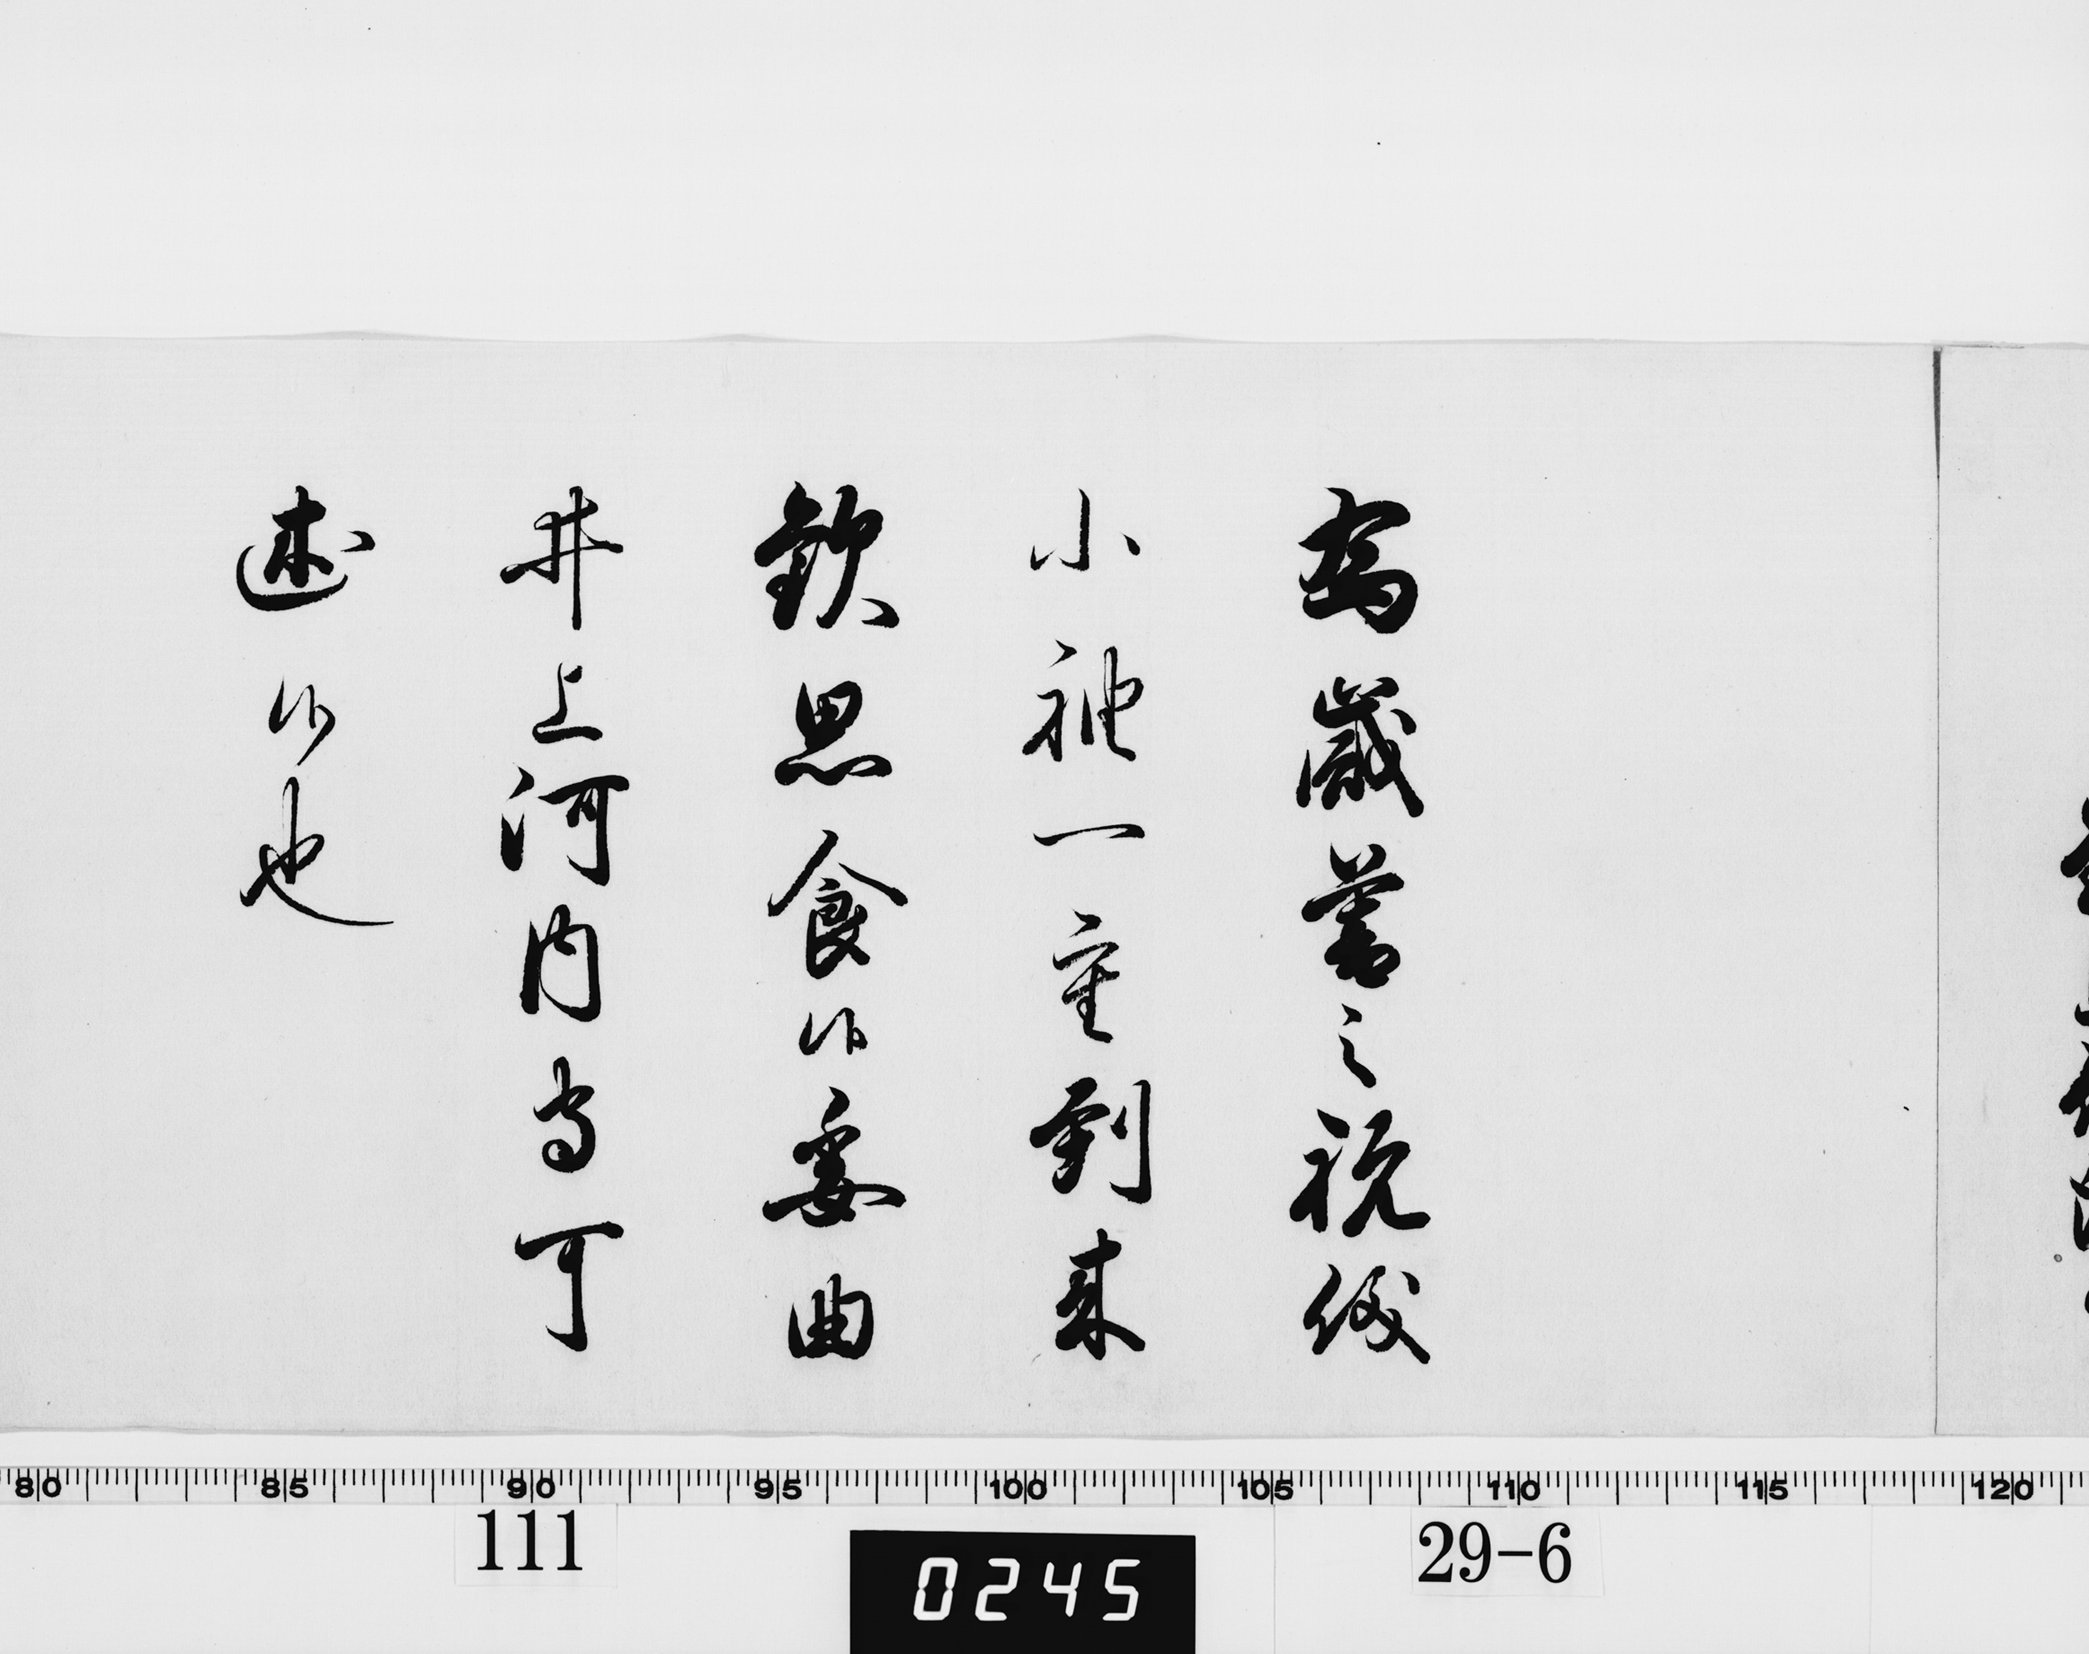 為歳暮之祝儀
小袖一重到来
歓思食候委曲
井上河内守可
述候也
80 85 90 95 100 105 110 115 120
111
0245
29-6